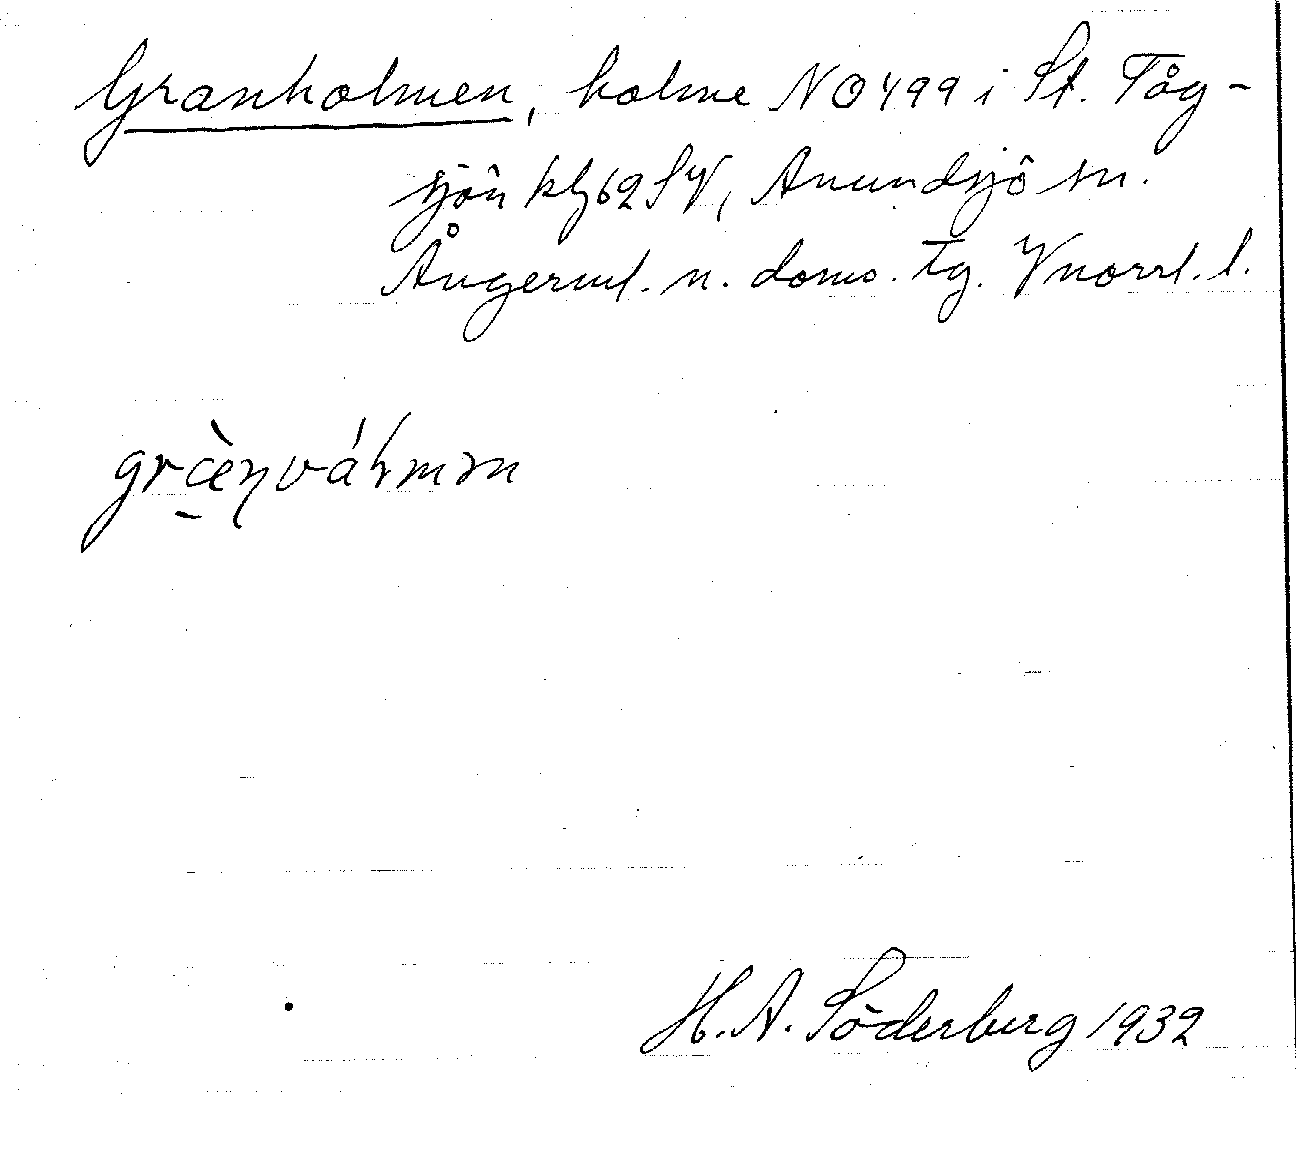 Granholmen, holme NO499 i St. Tåg-
sjön kbl62SV, Anundsjö sn.
Ångerml. n. doms. tg. Vnorrl. l.
græ̀nváɫmən
H. A. Söderberg 1932